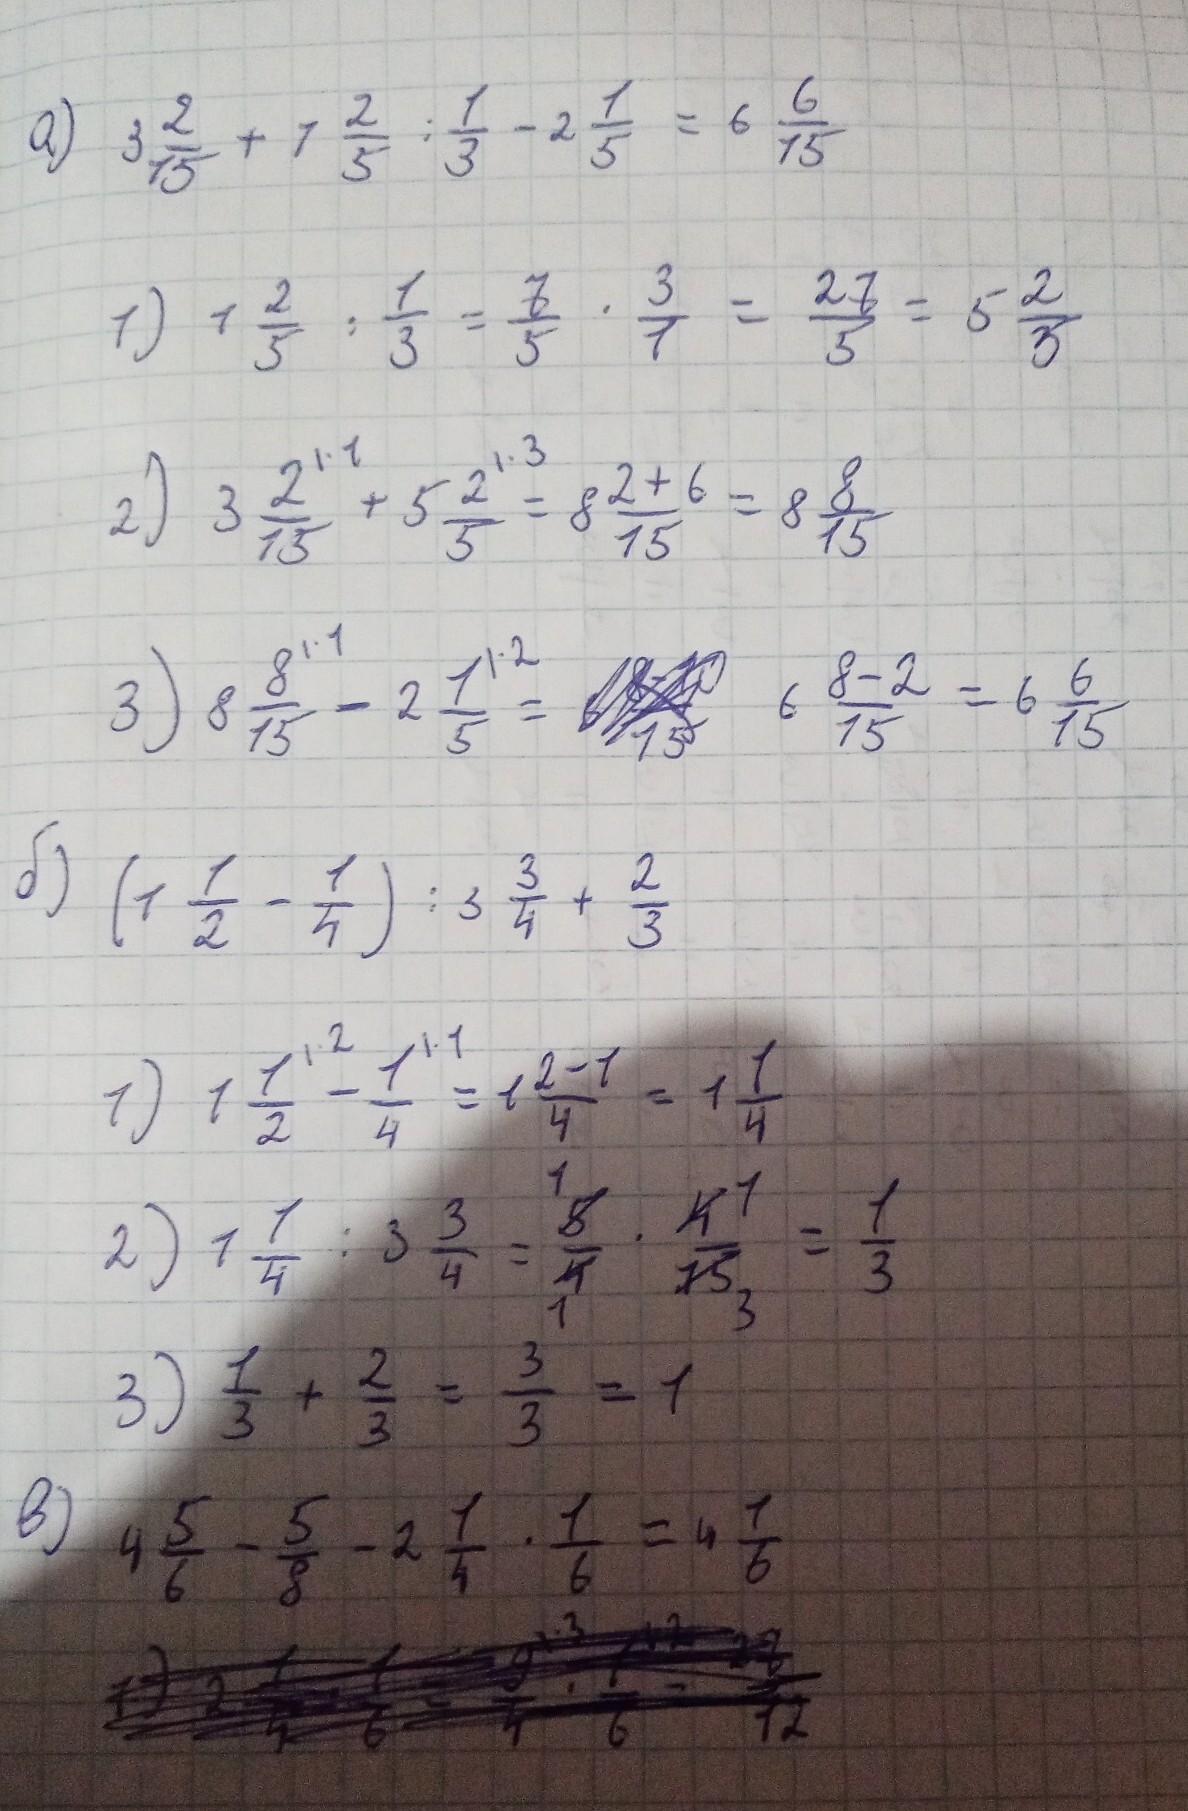 а) 3 2/15 + 1 2/5 : 1/3 - 2 1/5 = 6 6/15
1) 1 2/5 : 1/3 = 7/5 · 3/1 = 27/5 = 5 2/5
2) 3 2/15 |·1 + 5 2/5 |·3 = 8 2+6/15 = 8 8/15
3) 8 8/15 |·1 - 2 1/5 |·2 = 6 8-2/15 = 6 6/15
б) (1 1/2 - 1/4) : 3 3/4 + 2/3
1) 1 1/2 |·2 - 1/4 |·1 = 1 2-1/4 = 1 1/4
2) 1 1/4 : 3 3/4 = 1 5/4 1 · 4 1/15 3 = 1/3
3) 1/3 + 2/3 = 3/3 = 1
в) 4 5/6 - 5/8 - 2 1/4 · 1/6 = 4 1/6